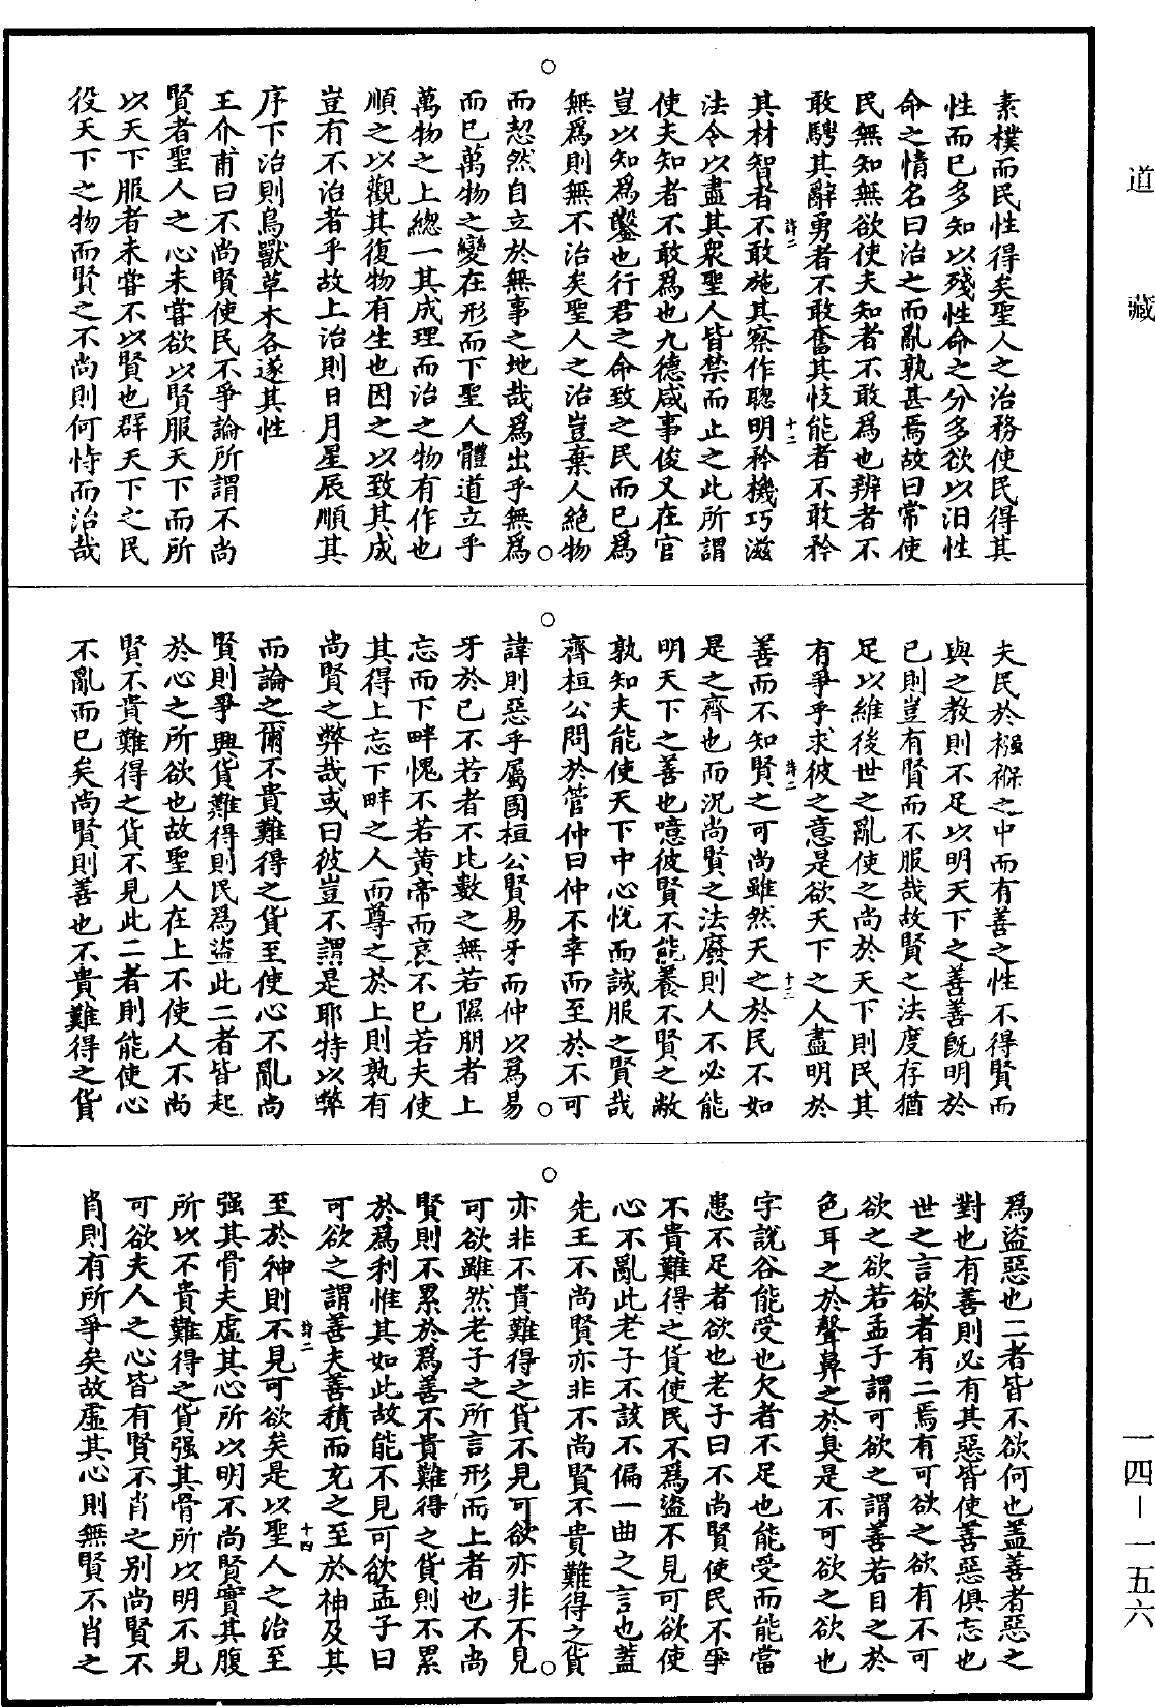 道藏
素樸而民性得矣聖人之治務使民得其
性而已多知以殘性命之分多欲以汨性
命之情名曰治之而亂孰甚焉故曰常使
民無知無欲使夫知者不敢為也辨者不
敢騁其辭勇者不敢奮其忮能者不敢矜
詩二
十二
其材智者不敢施其察作聰明矜機巧滋
法令以盡其衆聖人皆禁而止之此所謂
使夫知者不敢為也九德咸事俊乂在官
豈以知為鑿也行君之命致之民而已為
無為則無不治矣聖人之治豈棄人絕物
而恝然自立於無事之地哉為出乎無為
而已萬物之變在形而下聖人體道立乎
萬物之上總一其成理而治之物有作也
順之以觀其復物有生也因之以致其成
豈有不治者乎故上治則日月星辰順其
序下治則鳥獸草木各遂其性
王介甫曰不尚賢使民不爭論所謂不尚
賢者聖人之心未嘗欲以賢服天下而所
以天下服者未嘗不以賢也群天下之民
役天下之物而賢之不尚則何恃而治哉
夫民於襁褓之中而有善之性不得賢而
與之教則不足以明天下之善善既明於
已則豈有賢而不服哉故賢之法度存猶
足以維後世之亂使之尚於天下則民其
有爭乎求彼之意是欲天下之人盡明於
詩二
十三
善而不知賢之可尚雖然天之於民不如
是之齊也而況尚賢之法廢則人不必能
明天下之善也噫彼賢不能養不賢之敝
孰知夫能使天下中心悅而誠服之賢哉
齊桓公問於管仲曰仲不幸而至於不可
諱則惡乎屬國桓公賢易牙而仲以為易
牙於已不若者不比數之無若隰朋者上
忘而下畔愧不若黃帝而哀不已若夫使
其得上忘下畔之人而尊之於上則孰有
尚賢之弊哉或曰彼豈不謂是耶特以弊
而論之爾不貴難得之貨至使心不亂尚
賢則爭興貨難得則民為盜此二者皆起
於心之所欲也故聖人在上不使人不尚
賢不貴難得之貨不見此二者則能使心
不亂而已矣尚賢則善也不貴難得之貨
為盜惡也二者皆不欲何也蓋善者惡之
對也有善則必有其惡皆使善惡俱忘也
世之言欲者有二焉有可欲之欲有不可
欲之欲若孟子謂可欲之謂善若目之於
色耳之於聲鼻之於臭是不可欲之欲也
字說谷能受也欠者不足也能受而能當
患不足者欲也老子曰不尚賢使民不爭
不貴難得之貨使民不為盜不見可欲使
心不亂此老子不該不偏一曲之言也蓋
先王不尚賢亦非不尚賢不貴難得之貨
亦非不貴難得之貨不見可欲亦非不見
可欲雖然老子之所言形而上者也不尚
賢則不累於為善不貴難得之貨則不累
於為利惟其如此故能不見可欲孟子曰
可欲之謂善夫善積而充之至於神及其
詩二
十四
至於神則不見可欲矣是以聖人之治至
强其骨夫虛其心所以明不尚賢實其腹
所以不貴難得之貨强其骨所以明不見
可欲夫人之心皆有賢不肖之别尚賢不
肖則有所爭矣故虛其心則無賢不肖之
一四—一五六